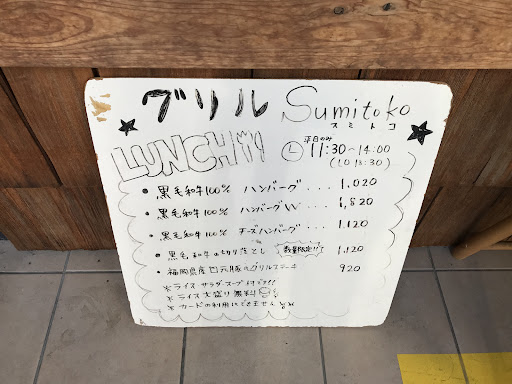 グリル Sumitoko
スミトコ
LUNCH
平日のみ
11:30~14:00
(LO 13:30)
• 黒毛和牛100% ハンバーグ... 1,020
• 黒毛和牛100% ハンバーグW... 1,820
• 黒毛和牛100% チーズハンバーグ... 1,120
• 黒毛和牛の切り落とし 数量限定 1,320
• 福岡県産 豚のグリルステーキ 920
※ライス サラダ スープ付です!!
※ライス大盛り無料
※カードの利用はできません